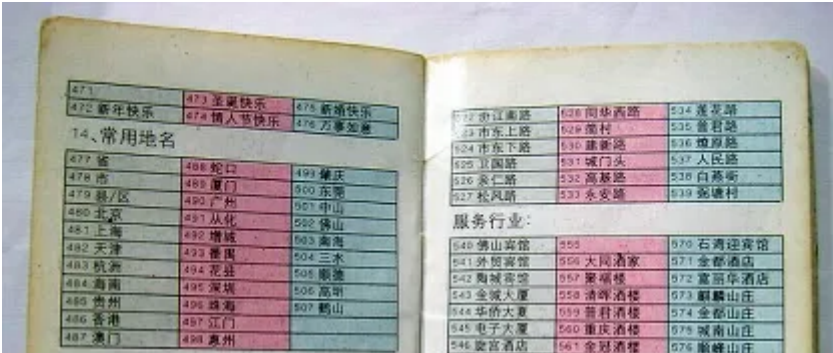 471
472 新年快乐 473 圣诞快乐 475 新婚快乐
474 情人节快乐 476 万事如意
14、常用地名
477 省 488 蛇口 499 肇庆
478 市 489 厦门 500 东莞
479 县/区 490 广州 501 中山
480 北京 491 从化 502 佛山
481 上海 492 增城 503 南海
482 天津 493 番禺 504 三水
483 杭洲 494 花县 505 顺德
484 海南 495 深圳 506 高明
485 贵州 496 珠海 507 鹤山
486 香港 497 江门
487 澳门 498 惠州
522 汾江南路 528 同华西路 534 莲花路
523 市东上路 529 简村 535 普君路
524 市东下路 530 建新路 536 燎原路
525 卫国路 531 城门头 537 人民路
526 亲仁路 532 高基路 538 白燕街
527 松风路 533 永安路 539 弼塘村
服务行业:
540 佛山宾馆 555 570 石湾迎宾馆
541 外贸宾馆 556 大同酒家 571 金都酒店
542 陶城宾馆 557 聚福楼 572 富丽华酒店
543 金城大厦 558 清晖酒楼 573 麒麟山庄
544 华侨大夏 559 普君酒楼 574 金都山庄
545 电子大厦 560 重庆酒楼 575 城南山庄
546 旋宫酒店 561 金冠酒楼 576 顺峰山庄